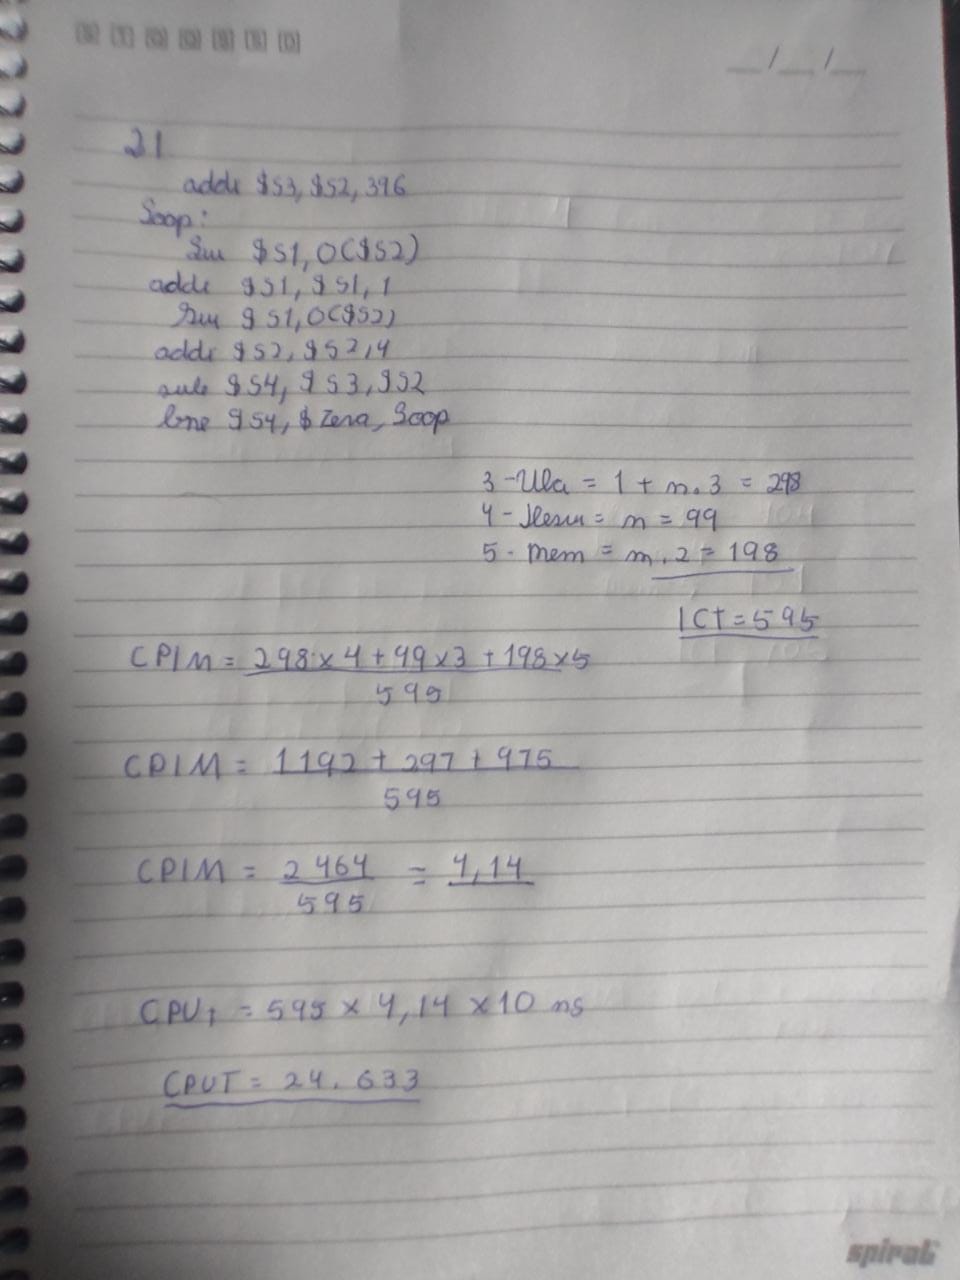 S T Q Q S S D
__/__/__
21
addi $S3, $S2, 396
Loop:
Lw $S1, 0($S2)
addi $S1, $S1, 1
Sw $S1, 0($S2)
addi $S2, $S2, 4
sub $S4, $S3, $S2
bne $S4, $ Zero, Loop
3 - Ula = 1 + n.3 = 298
4 - = n = 99
5 - mem = n.2 = 198
ICT = 595
CPIM = 298 x 4 + 99 x 3 + 198 x 5
595
CPIM = 1192 + 297 + 975
595
CPIM = 2464 = 4,14
595
CPUt = 595 x 4,14 x 10 ns
CPUT = 24.633
spiral